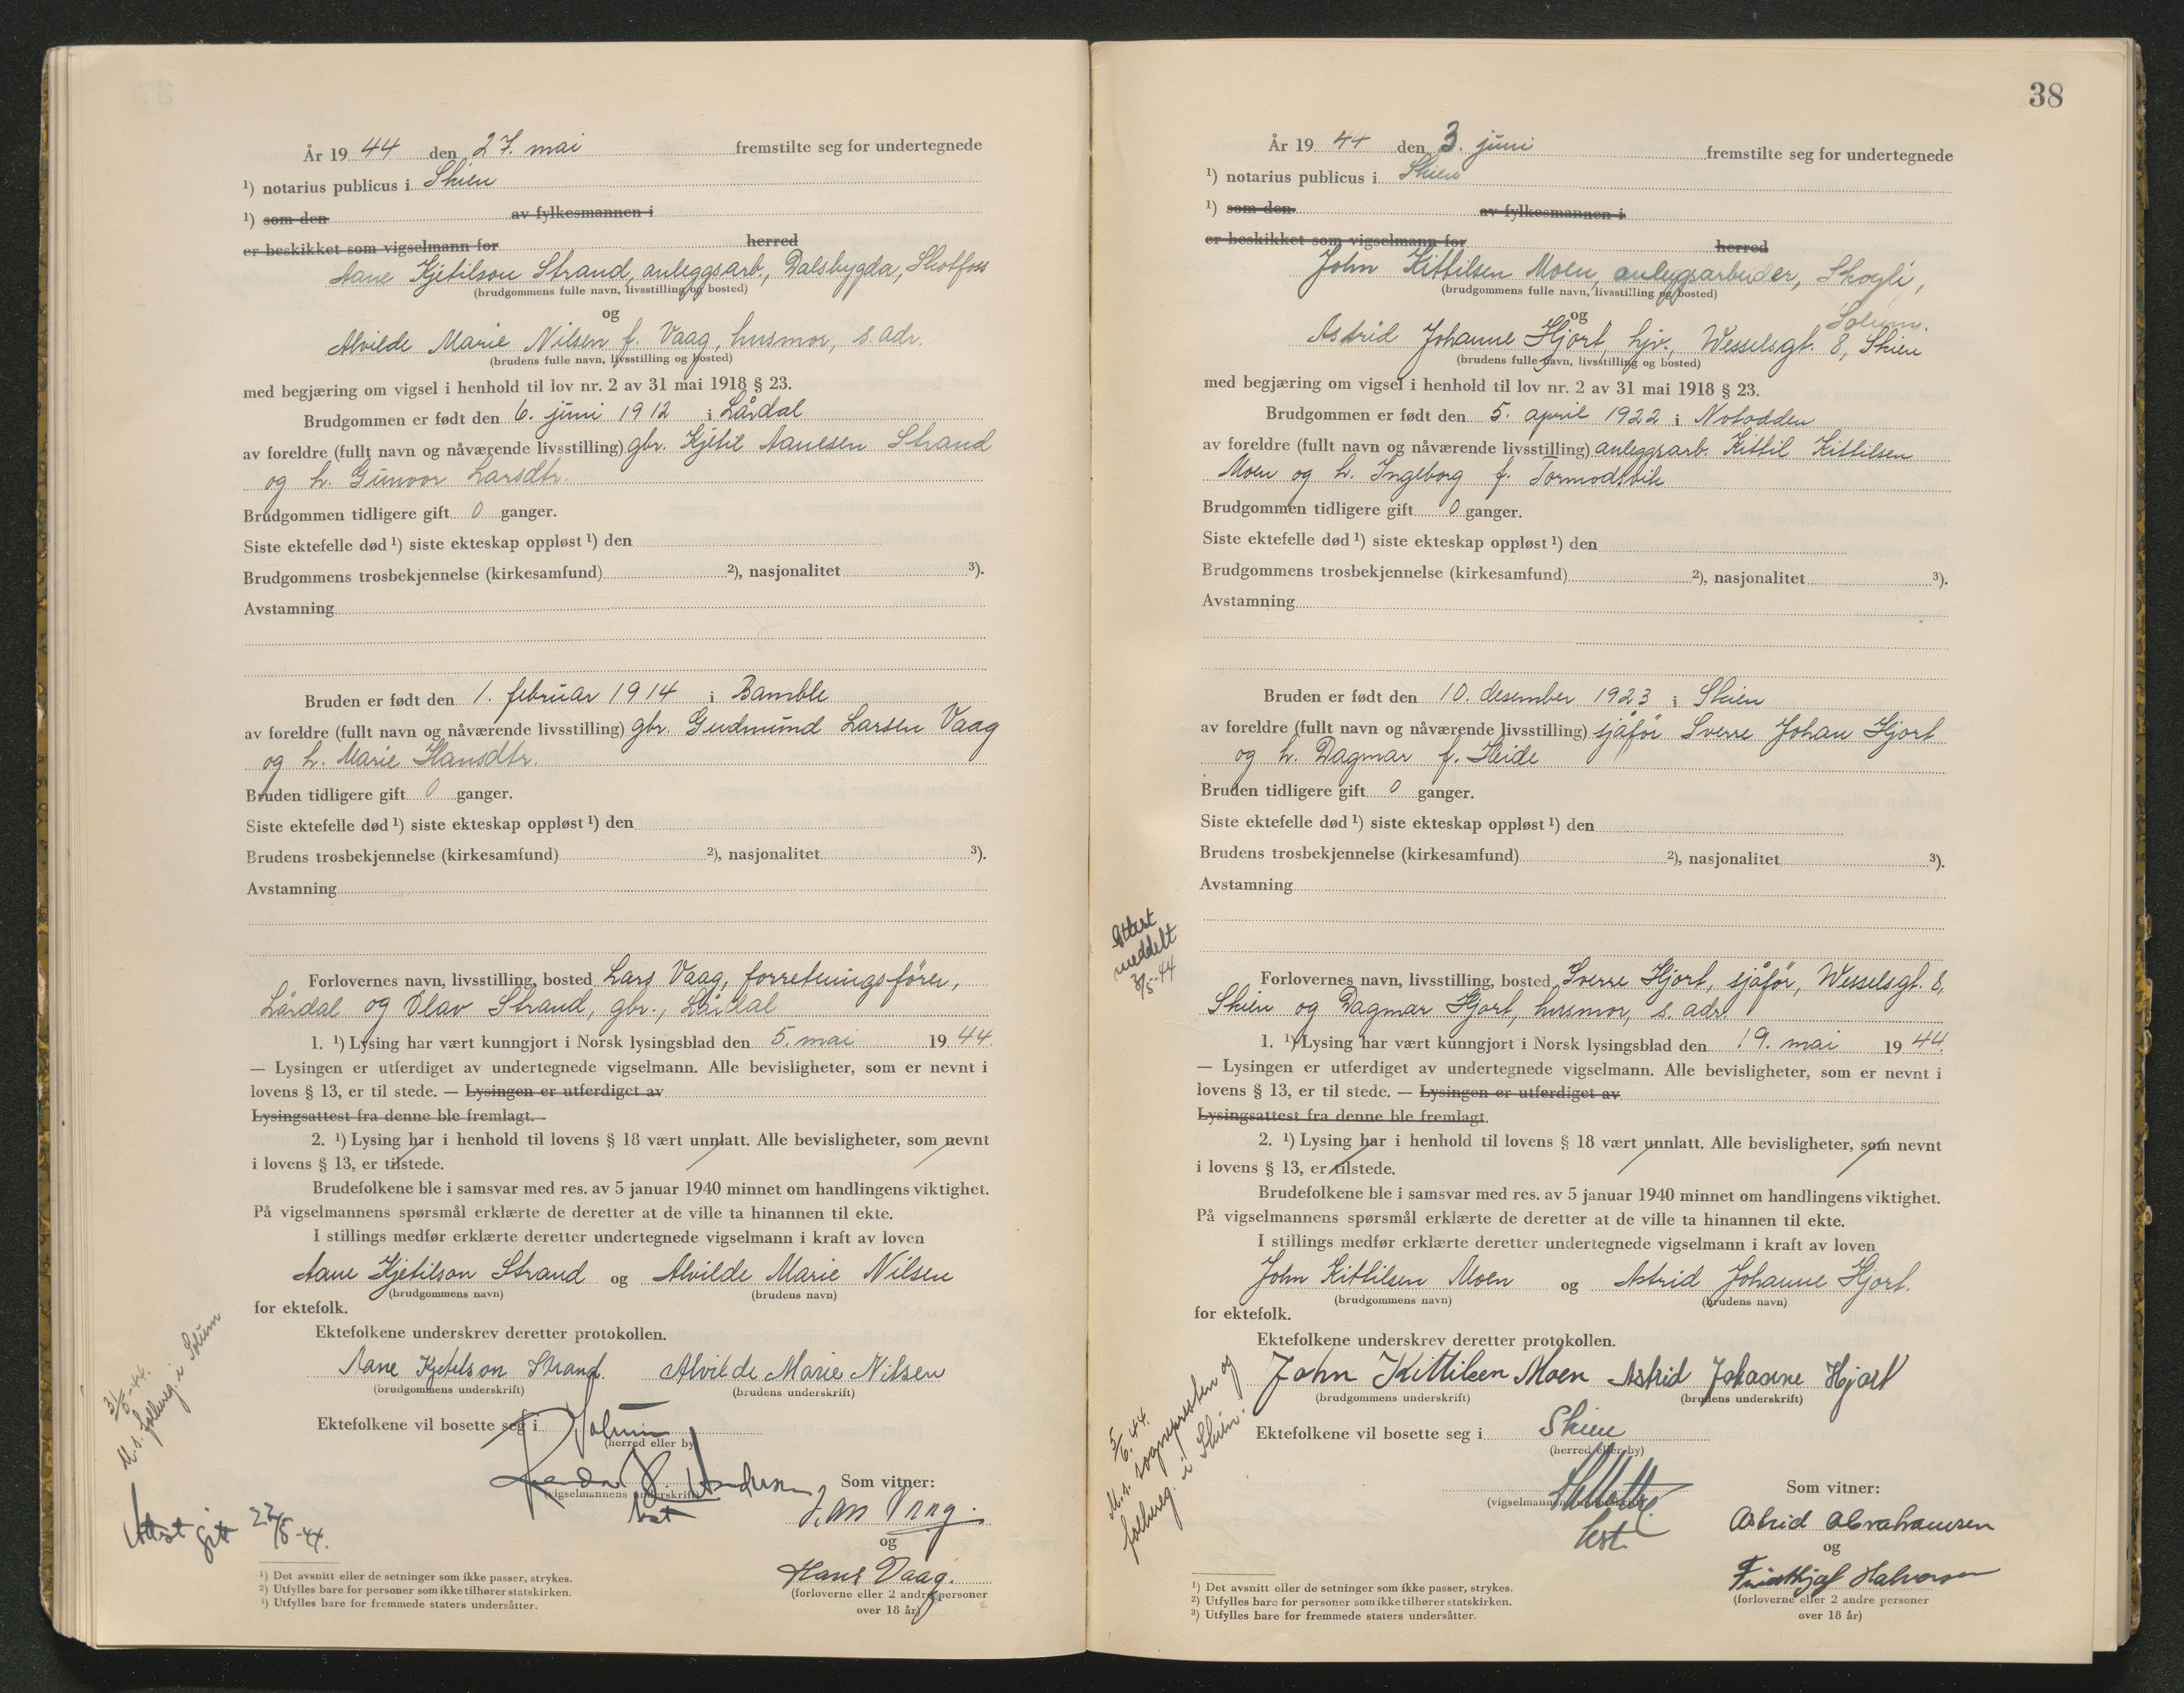 År 19 44 den 27. mai fremstilte seg for undertegnede
¹) notarius publicus i Skien
¹) som den av fylkesmannen i
er beskikket som vigselmann for herred
Aane Kjetilson Strand, anleggsarb., Dalsbygda, Skotfoss
(brudgommens fulle navn, livsstilling og bosted)
og
Alvilde Marie Nilsen f. Vaag, husmor, s. adr.
(brudens fulle navn, livsstilling og bosted)
med begjæring om vigsel i henhold til lov nr. 2 av 31 mai 1918 § 23.
Brudgommen er født den 6. juni 1912 i Lårdal
av foreldre (fullt navn og nåværende livsstilling) gbr. Kjetil Aanesen Strand
og h. Gunvor Larsdtr.
Brudgommen tidligere gift 0 ganger.
Siste ektefelle død ¹) siste ekteskap oppløst ¹) den
Brudgommens trosbekjennelse (kirkesamfund) ²), nasjonalitet ³).
Avstamning
Bruden er født den 1. februar 1914 i Bamble
av foreldre (fullt navn og nåværende livsstilling) gbr. Gudmund Larsen Vaag
og h. Marie Hansdtr.
Bruden tidligere gift 0 ganger.
Siste ektefelle død ¹) siste ekteskap oppløst ¹) den
Brudens trosbekjennelse (kirkesamfund) ²), nasjonalitet ³).
Avstamning
Forlovernes navn, livsstilling, bosted Lars Vaag, forretningsfører,
Lårdal og Olav Strand, gbr., Lårdal
1. ¹) Lysing har vært kunngjort i Norsk lysingsblad den 5. mai 19 44.
— Lysingen er utferdiget av undertegnede vigselmann. Alle bevisligheter, som er nevnt i
lovens § 13, er til stede. — Lysingen er utferdiget av
Lysingsattest fra denne ble fremlagt. -
2. ¹) Lysing har i henhold til lovens § 18 vært unnlatt. Alle bevisligheter, som nevnt
i lovens § 13, er tilstede.
Brudefolkene ble i samsvar med res. av 5 januar 1940 minnet om handlingens viktighet.
På vigselmannens spørsmål erklærte de deretter at de ville ta hinannen til ekte.
I stillings medfør erklærte deretter undertegnede vigselmann i kraft av loven
Aane Kjetilson Strand og Alvilde Marie Nilsen
(brudgommens navn) (brudens navn)
for ektefolk.
Ektefolkene underskrev deretter protokollen.
Aane Kjetelson Strand. Alvilde Marie Nilsen
(brudgommens underskrift) (brudens underskrift)
Ektefolkene vil bosette seg i Solum
(herred eller by)
31/5-44.
M. s. folkreg. i Solum
Som vitner:
(vigselmannens underskrift)
Attest gitt 27/5-44.
og
Hans Vaag.
(forloverne eller 2 andre personer
over 18 år)
¹) Det avsnitt eller de setninger som ikke passer, strykes.
²) Utfylles bare for personer som ikke tilhører statskirken.
³) Utfylles bare for fremmede staters undersåtter.
38
År 19 44 den 3. juni fremstilte seg for undertegnede
¹) notarius publicus i Skien
¹) som den av fylkesmannen i
er beskikket som vigselmann for herred
John Kittilsen Moen, anleggsarbeider, Skogli,
(brudgommens fulle navn, livsstilling og bosted)
Solum.
og
Astrid Johanne Hjort, hjv., Wesselsgt. 8, Skien
(brudens fulle navn, livsstilling og bosted)
med begjæring om vigsel i henhold til lov nr. 2 av 31 mai 1918 § 23.
Brudgommen er født den 5. april 1922 i Notodden
av foreldre (fullt navn og nåværende livsstilling) anleggsarb. Kittil Kittilsen
Moen og h. Ingeborg f. Tormodsvik
Brudgommen tidligere gift 0 ganger.
Siste ektefelle død ¹) siste ekteskap oppløst ¹) den
Brudgommens trosbekjennelse (kirkesamfund) ²), nasjonalitet ³).
Avstamning
Bruden er født den 10. desember 1923 i Skien
av foreldre (fullt navn og nåværende livsstilling) sjåfør Sverre Johan Hjort
og h. Dagmar f. Heide
Bruden tidligere gift 0 ganger.
Siste ektefelle død ¹) siste ekteskap oppløst ¹) den
Brudens trosbekjennelse (kirkesamfund) ²), nasjonalitet ³).
Avstamning
Attest
meddelt
3/5-44
Forlovernes navn, livsstilling, bosted Sverre Hjort, sjåfør, Wesselsgt. 8,
Skien og Dagmar Hjort, husmor, s. adr.
1. ¹) Lysing har vært kunngjort i Norsk lysingsblad den 19. mai 19 44.
— Lysingen er utferdiget av undertegnede vigselmann. Alle bevisligheter, som er nevnt i
lovens § 13, er til stede. — Lysingen er utferdiget av
Lysingsattest fra denne ble fremlagt.
2. ¹) Lysing har i henhold til lovens § 18 vært unnlatt. Alle bevisligheter, som nevnt
i lovens § 13, er tilstede.
Brudefolkene ble i samsvar med res. av 5 januar 1940 minnet om handlingens viktighet.
På vigselmannens spørsmål erklærte de deretter at de ville ta hinannen til ekte.
I stillings medfør erklærte deretter undertegnede vigselmann i kraft av loven
John Kittilsen Moen og Astrid Johanne Hjort.
(brudgommens navn) (brudens navn)
for ektefolk.
Ektefolkene underskrev deretter protokollen.
John Kittilsen Moen Astrid Johanne Hjort
(brudgommens underskrift) (brudens underskrift)
Ektefolkene vil bosette seg i Skien
(herred eller by)
5/6.44.
M. s. sognepresten og
folkreg. i Skien.
(vigselmannens underskrift)
Som vitner:
Astrid Abrahamsen
og
Fridthjof Halvorsen
(forloverne eller 2 andre personer
over 18 år)
¹) Det avsnitt eller de setninger som ikke passer, strykes.
²) Utfylles bare for personer som ikke tilhører statskirken.
³) Utfylles bare for fremmede staters undersåtter.